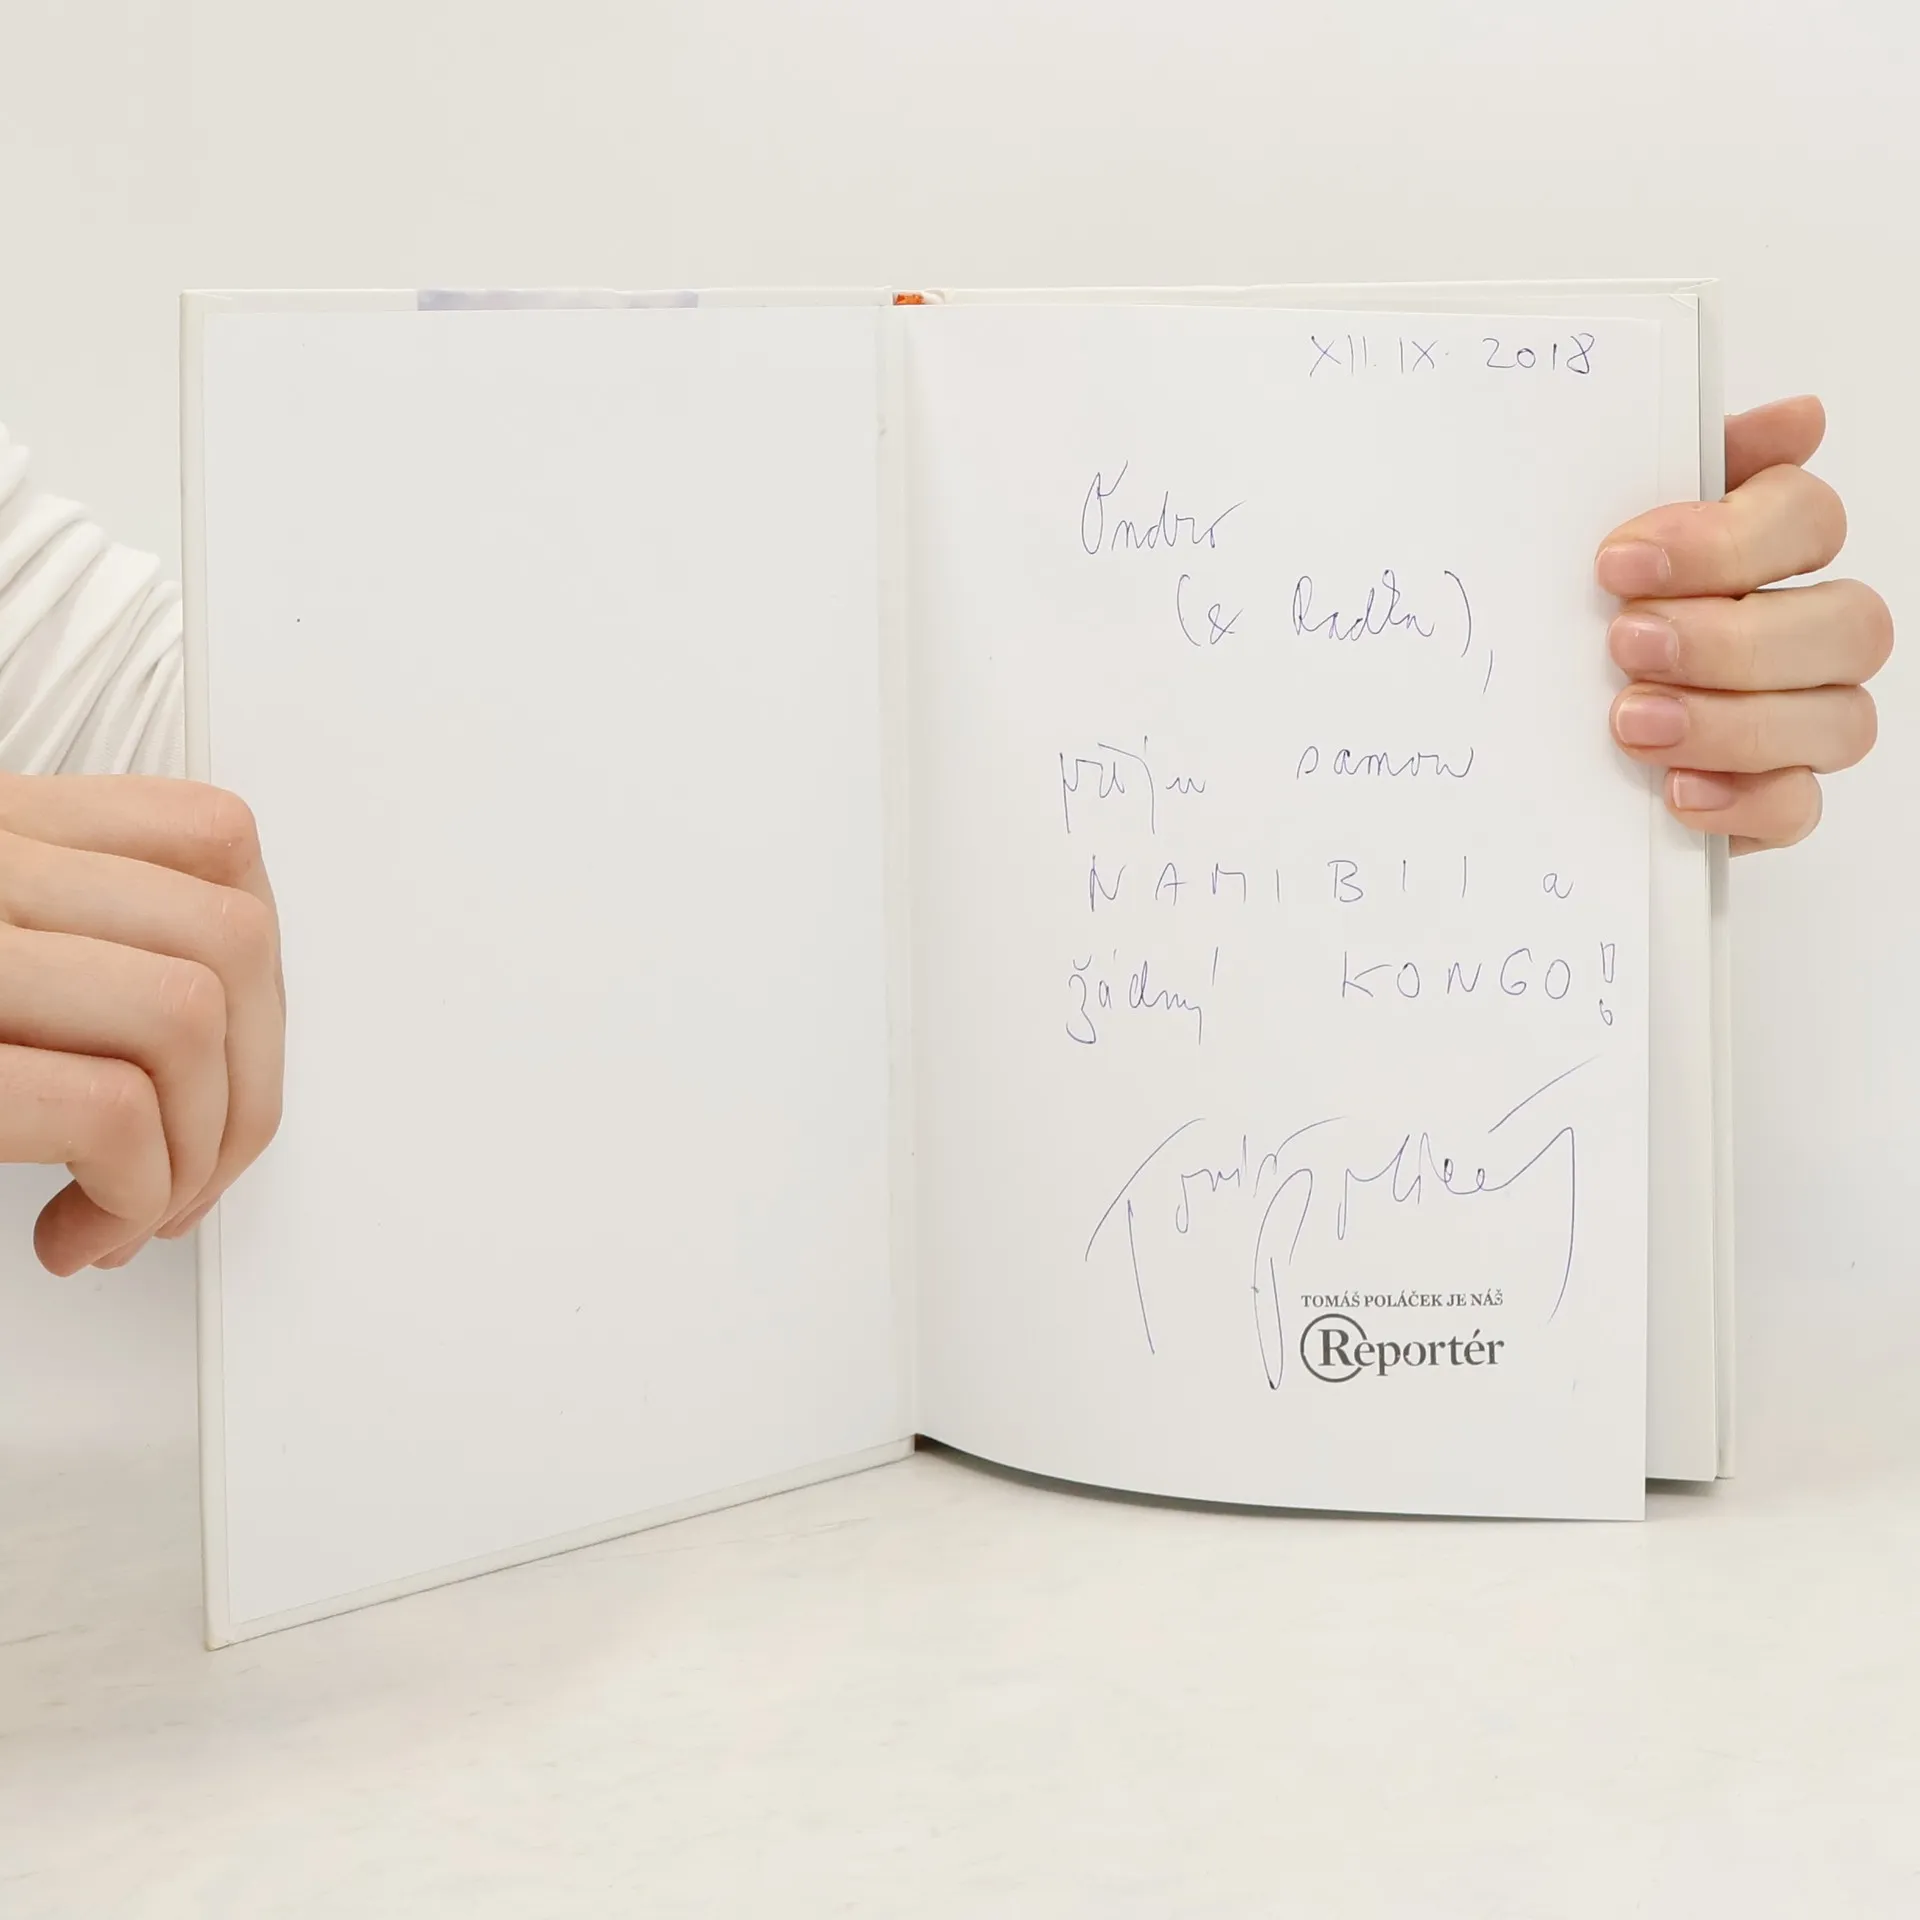 XII. IX. 2018
Ondro
(& Radka),
přeju samou
NAMIBII a
žádný KONGO!
Tomáš Poláček
TOMÁŠ POLÁČEK JE NÁŠ
Reportér